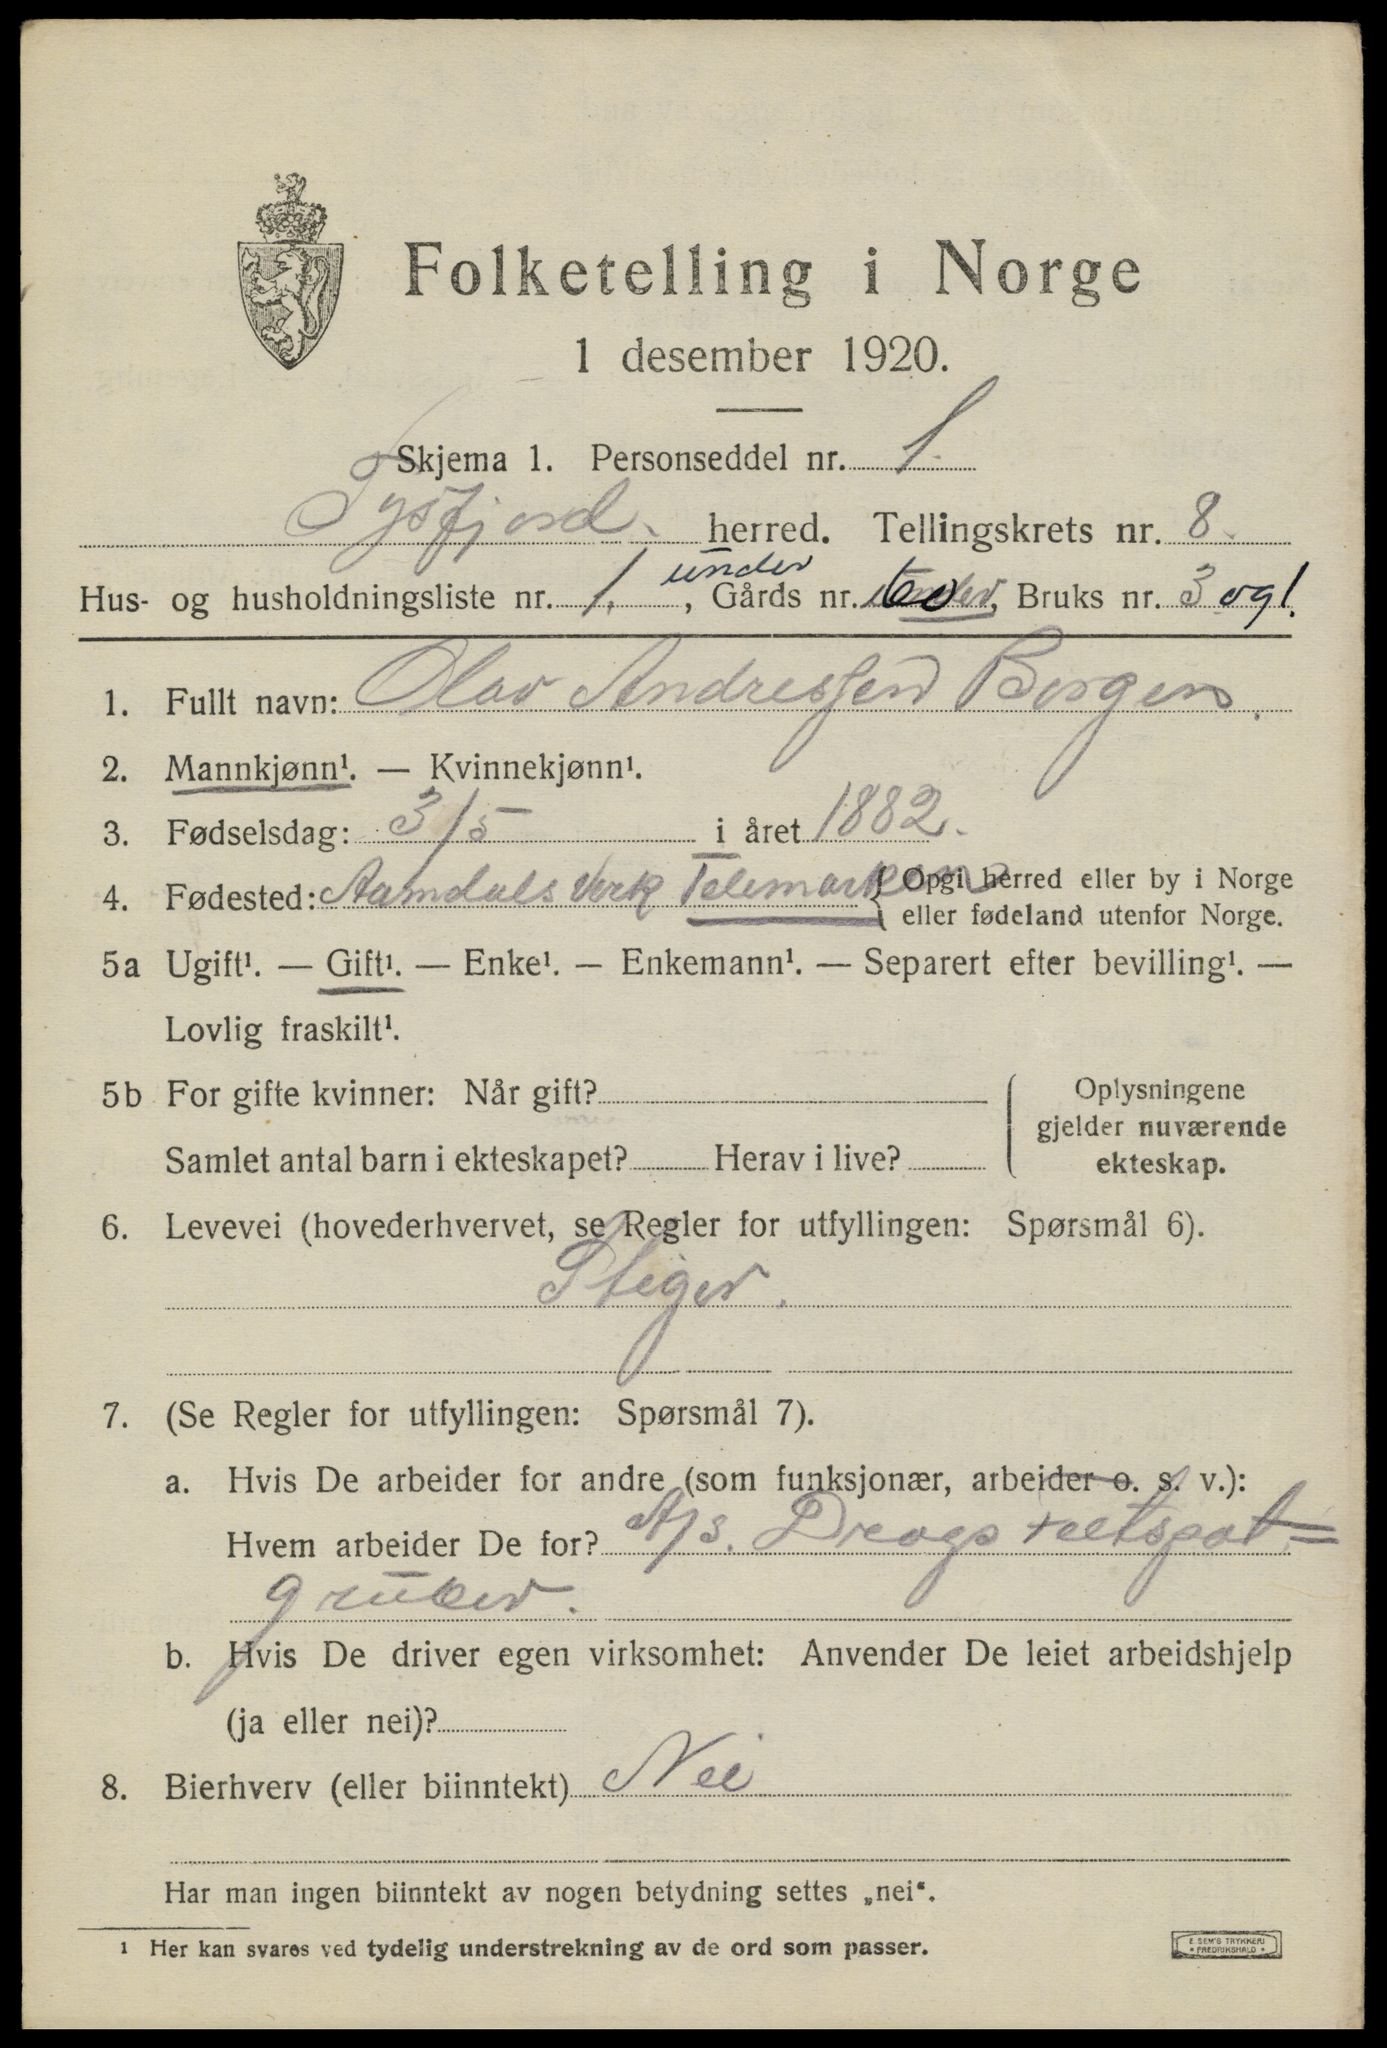 Folketelling i Norge
1 desember 1920.
Skjema 1. Personseddel nr. 1.
Tysfjord. herred. Tellingskrets nr. 8.
Hus- og husholdningsliste nr. 1. under, Gårds nr. 60, Bruks nr. 3 og 1.
1. Fullt navn: Olav Andressen Borgen.
2. Mannkjønn¹. — Kvinnekjønn¹.
3. Fødselsdag: 3/5 i året 1882.
4. Fødested: Aamdals Verk Telemarken { Opgi herred eller by i Norge
eller fødeland utenfor Norge.
5a Ugift¹. — Gift¹. — Enke¹. — Enkemann¹. — Separert efter bevilling¹. —
Lovlig fraskilt¹.
5b For gifte kvinner: Når gift?
Samlet antal barn i ekteskapet? Herav i live?
Oplysningene
gjelder nuværende
ekteskap.
6. Levevei (hovederhvervet, se Regler for utfyllingen: Spørsmål 6).
Stiger.
7. (Se Regler for utfyllingen: Spørsmål 7).
a. Hvis De arbeider for andre (som funksjonær, arbeider o. s. v.):
Hvem arbeider De for? A/S. Drags Feltspat=
gruber.
b. Hvis De driver egen virksomhet: Anvender De leiet arbeidshjelp
(ja eller nei)?
8. Bierhverv (eller biinntekt) Nei
Har man ingen biinntekt av nogen betydning settes „nei“.
¹ Her kan svares ved tydelig understrekning av de ord som passer.
E. SEM'S TRYKKERI
• FREDRIKSHALD •